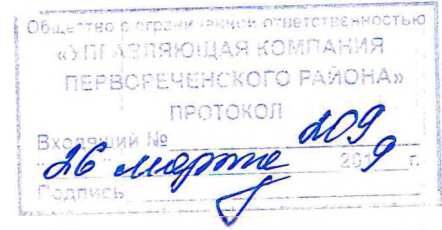 Общество с ограниченной ответственностью
«УПРАВЛЯЮЩАЯ КОМПАНИЯ
ПЕРВОРЕЧЕНСКОГО РАЙОНА»
ПРОТОКОЛ
Входящий № 209
26 марта 2019 г.
Подпись